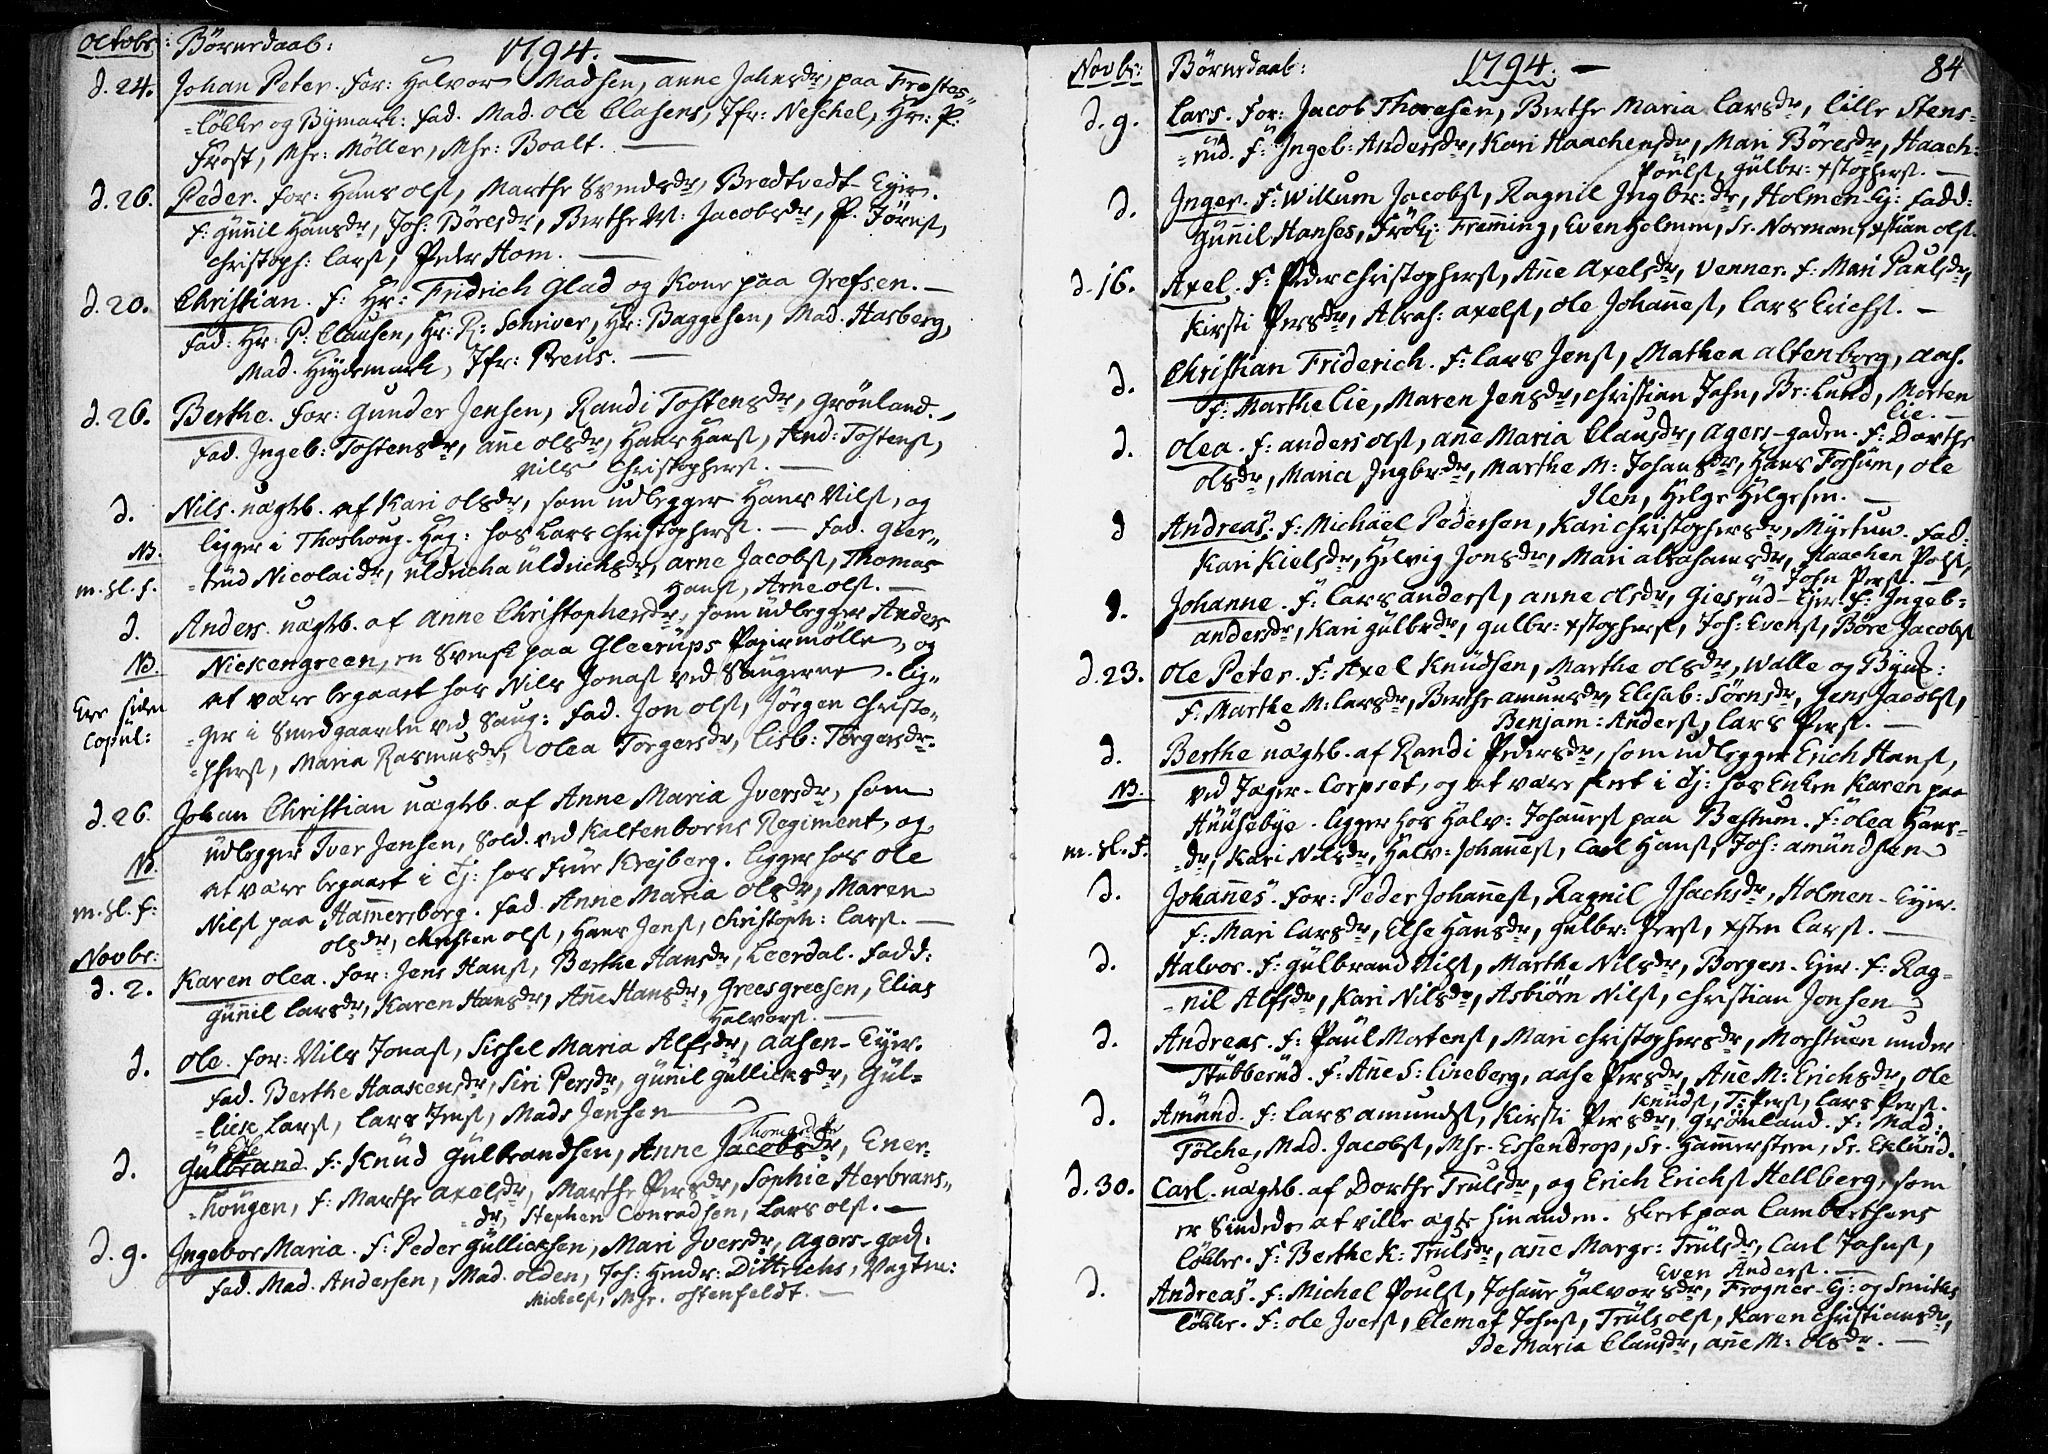 Octobr: Börnedaab: 1794. —
d. 24. Johan Peter. For: Halvor Madsen, Anne Johnsdr, paa Frostes-
-lökke og Bymark: Fad. Mad. Ole Clasens, Jfr: Neschel, Hr: P:
Frost, Mr: Möller, Mr: Boalt. —
d. 26. Peder. For: Hans Olsß, Marthe Svendsdr, Bredtvedt-Eyer.
F: Gunnil Hansdr, Joh: Böresdr, Berthe M: Jacobsdr, P. Jörnsß,
Christoph: Larsß, Peder Hom. —
d. 20. Christian. F: Hr: Fridrich Glad og Kone paa Grefsen. —
Fad: Hr: P: Clausen, Hr: R: Schriver, Hr: Baggesen, Mad. Hasberg,
Mad. Heydemark, Jfr: Preus. —
d. 26. Berthe. For: Gunder Jensen, Randi Tostensdr, Grönland. —
Fad. Ingeb: Tostensdr, Ane Olsdr, Hans Hansß, And: Tostensß,
Nils Christophersß. —
d. Nils. uægteb. af Kari Olsdr, som udlegger Hans Nilsß, og
ligger i Thoshoug-Hag: hos Lars Christophersß. — Fad. Gier-
NB. -trud Nicolaidr, Uldricha Uldrichsdr, Arne Jacobsß, Thomas
m. sl. f. Hansß, Arne Olsß. —
d. Anders. uægteb. af Anne Christophersdr, som udlegger Anders
NB. Nickengreen, en Svensk paa Gleerups Papiirmölle, og
at være begaaet hos Nils Jonasß ved Saugerne. lig-
Ere siden -ger i Smedgaarden ved Saug: Fad. Jon Olsß, Jörgen Christo-
Copul: -phersß, Maria Rasmusdr, Olea Torgersdr, Lisb: Torgersdr.
d. 26. Johan Christian uægteb. af Anne Maria Iversdr, som
udlegger Iver Jensen, Sold. ved Kaltenborns Regiment, og
NB. at være begaaet i Tj: hos Frue Krejberg. ligger hos Ole
m. sl. f: Nilsß paa Hamersborg. Fad. Anne Maria Olsdr, Maren
Olsdr, Christen Olsß, Hans Jensß, Christoph: Larsß. —
Novbr:
d. 2. Karen Olea. For: Jens Hansß, Berthe Hansdr, Leerdal. Fadd:
Gunnil Larsdr, Karen Hansdr, Ane Hansdr, Greesgreesen, Elias
Halvorsß. —
d. Ole. For: Nils Jonasß, Sissel Maria Alfsdr, Aasen-Eyer.
Fad. Berthe Haakensdr, Siri Persdr, Gunil Gullicksdr, Gul-
-lick Larsß, Lars Jensß, Mads Jensen
Thomasdr
d. Gulbrand. F: Knud Gulbrandsen, Anne Jacobsdr, Ener-
-hougen, F: Marthe Axelsdr, Marthe Persdr, Sophie Herbrans-
-dr, Stephen Conradsen, Lars Olsß. —
d. 9. Ingebor Maria. F: Peder Gullicksen, Mari Iversdr, Agers-gad.
Fad. Mad. Andersen, Mad. Olden, Joh: Hendr: Dittrichs, Vagtm:
Michelsß, Mr. Ostenfeldt. —
Novbr: Börnedaab: 1794. — 84
d. 9. Lars. For: Jacob Thoresen, Berthe Maria Larsdr, Lille Stens-
-rud. F: Ingeb: Andersdr, Kari Haachensdr, Mari Böresdr, Haach:
Poulsß, Gulbr: Xstophersß. —
d. Inger. F: Willum Jacobsß, Ragnil Ingbr:dr, Holmen-Ej: Fadd:
Gunnil Hanses, Frök: Fremming, Even Holmen, Sr. Norman, Xstian Olsß.
d. 16. Axel. F: Peder Christophersß, Ane Axelsdr, Venner. F: Mari Paulsdr,
Kirsti Persdr, Abrah: Axelsß, Ole Johanesß, Lars Erichsß. —
d. Christian Friderich. F: Lars Jensß, Mathea Altenborg, Aas.
F: Marthe Lie, Maren Jensdr, Christian John, Br: Lund, Morten
Lie. —
d. Olea. F: Anders Olsß, Ane Maria Clausdr, Agers-gaden. F: Dorthe
Olsdr, Maria Ingbrdr, Marthe M: Johansdr, Hans Forsum, Ole
Ilen, Helge Helgesen. —
d Andreas. F: Michael Pedersen, Kari Christophersdr, Myrtun. Fad:
Kari Kielsdr, Helvig Jonsdr, Mari Abrahamsdr, Haachen Polsß,
John Persß. —
d. Johanne. F: Lars Andersß, Anne Olsdr, Giesrud-Ejer. F: Ingeb-
Andersdr, Kari Gulbrdr, Gulbr: Xstophersß, Joh: Evensß, Böre Jacobsß
d. 23. Ole Peter. F: Axel Knudsen, Marthe Olsdr, Walle og Bym:
F: Marthe M: Larsdr, Berthe Amundsdr, Elisab: Sörnsdr, Jens Jacobsß,
Benjam: Andersß, Lars Persß. —
d. Berthe uægteb. af Randi Pedersdr, som udlegger Erich Hansß,
NB. ved Jæger-Corpset, og at være skeet i Tj: hos Enken Karen paa
Huusebye. ligger hos Halv: Johanesß paa Bestum. F: Olea Hans-
m. sl. f. -dr, Kari Nilsdr, Halv: Johanesß, Carl Hansß, Joh: Amundsen
d. Johanes. For: Peder Johanesß, Ragnil Isachsdr, Holmen-Eyer.
F: Mari Larsdr, Else Hansdr, Gulbr: Persß, Xsten Larsß. —
d. Halvor. F: Gulbrand Nilsß, Marthe Nilsdr, Borgen-Ejer. F: Rag-
-nil Alfsdr, Kari Nilsdr, Asbiörn Nilsß, Christian Jonsen
d. Andreas. F: Paul Mortensß, Mari Christophersdr, Morstuen under
Stubberud. F: Ane S: Lineberg, Aase Persdr, Ane M: Erichsdr, Ole
Knudsß, T: Persß, Lars Persß.
d. Amund. F: Lars Amundsß, Kirsti Persdr, Grönland. F: Mad:
Tölche, Mad. Jacobsß, Mr. Essendrop, Sr. Hammersten, Sr. Exlund.
d. 30. Carl. uægteb. af Dorthe Trulsdr, og Erich Erichsß Hellberg, som
er Sindede at ville ægte hinanden. Skeet paa Lamberthens
lökke. F: Berthe K: Trulsdr, Ane Margr: Trulsdr, Carl Johnsß,
Even Andersß. —
d. Andreas. F: Michel Poulsß, Johane Halvorsdr, Frogner-Ej: og Smiths
lökke. F: Ole Iversß, Clemet Johnsß, Truls Olsß, Karen Christiansdr,
Ide Maria Clausdr, Ane M: Olsdr. —